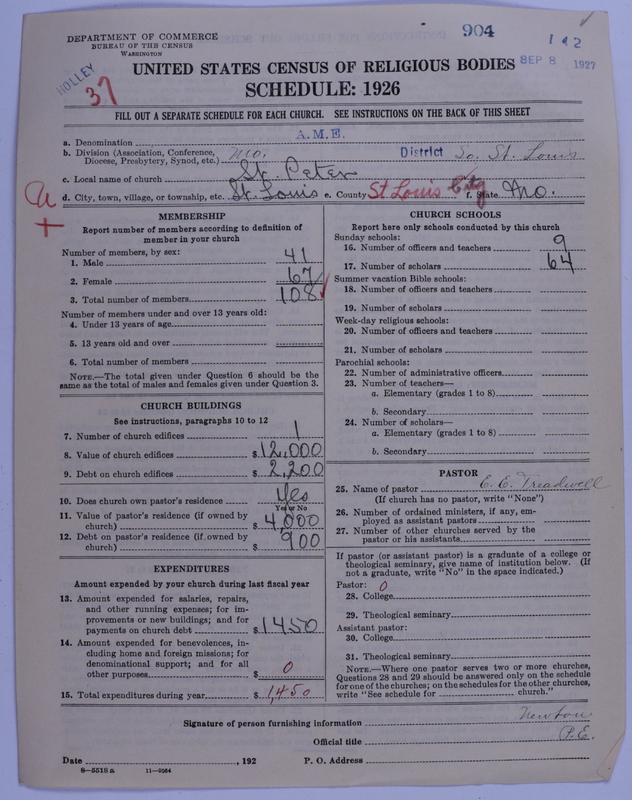 904
142
SEP 8 1927
HOLLEY
37
DEPARTMENT OF COMMERCE
BUREAU OF THE CENSUS
WASHINGTON
UNITED STATES CENSUS OF RELIGIOUS BODIES
SCHEDULE: 1926
FILL OUT A SEPARATE SCHEDULE FOR EACH CHURCH. SEE INSTRUCTIONS ON THE BACK OF THIS SHEET
a. Denomination A.M.E.
b. Division (Association, Conference, Diocese, Presbytery, Synod, etc.) Mo. District So. St. Louis
c. Local name of church St. Peter
d. City, town, village, or township, etc. St. Louis e. County St Louis City f. State Mo.
MEMBERSHIP
Report number of members according to definition of
member in your church
Number of members, by sex:
1. Male 41
2. Female 67
3. Total number of members 108
Number of members under and over 13 years old:
4. Under 13 years of age
5. 13 years old and over
6. Total number of members
NOTE.—The total given under Question 6 should be the
same as the total of males and females given under Question 3.
CHURCH BUILDINGS
See instructions, paragraphs 10 to 12
7. Number of church edifices 1
8. Value of church edifices $12,000
9. Debt on church edifices $2,200
10. Does church own pastor's residence Yes
Yes or No
11. Value of pastor's residence (if owned by
church) $4,000
12. Debt on pastor's residence (if owned by
church) $900
EXPENDITURES
Amount expended by your church during last fiscal year
13. Amount expended for salaries, repairs,
and other running expenses; for im-
provements or new buildings; and for
payments on church debt $1450
14. Amount expended for benevolences, in-
cluding home and foreign missions; for
denominational support; and for all
other purposes $0
15. Total expenditures during year $1,450
CHURCH SCHOOLS
Report here only schools conducted by this church
Sunday schools:
16. Number of officers and teachers 9
17. Number of scholars 64
Summer vacation Bible schools:
18. Number of officers and teachers
19. Number of scholars
Week-day religious schools:
20. Number of officers and teachers
21. Number of scholars
Parochial schools:
22. Number of administrative officers
23. Number of teachers—
a. Elementary (grades 1 to 8)
b. Secondary
24. Number of scholars—
a. Elementary (grades 1 to 8)
b. Secondary
PASTOR
25. Name of pastor E. E. Treadwell
(If church has no pastor, write "None")
26. Number of ordained ministers, if any, em-
ployed as assistant pastors
27. Number of other churches served by the
pastor or his assistants
If pastor (or assistant pastor) is a graduate of a college or
theological seminary, give name of institution below. (If
not a graduate, write "No" in the space indicated.)
Pastor: 0
28. College
29. Theological seminary
Assistant pastor:
30. College
31. Theological seminary
NOTE.—Where one pastor serves two or more churches,
Questions 28 and 29 should be answered only on the schedule
for one of the churches; on the schedules for the other churches,
write "See schedule for church."
Signature of person furnishing information Newton
Official title P.E.
Date , 192 P. O. Address
8—5518 a 11—9064